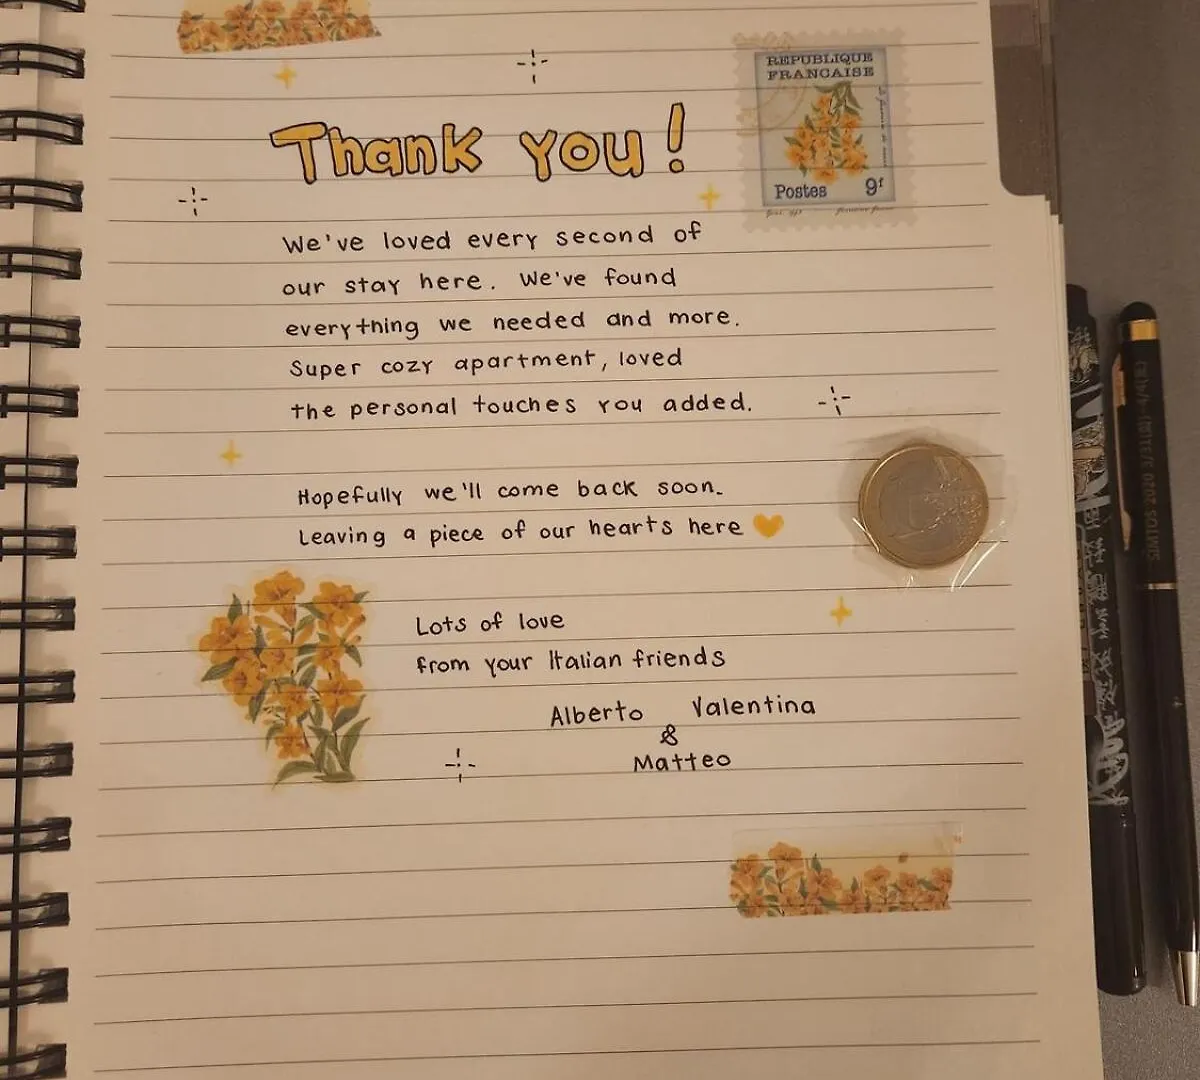 REPUBLIQUE
FRANCAISE
Postes 9f
Thank you!
We've loved every second of
our stay here. We've found
everything we needed and more.
Super cozy apartment, loved
the personal touches you added.
Hopefully we'll come back soon.
Leaving a piece of our hearts here
Lots of love
from your Italian friends
Alberto Valentina
&
Matteo